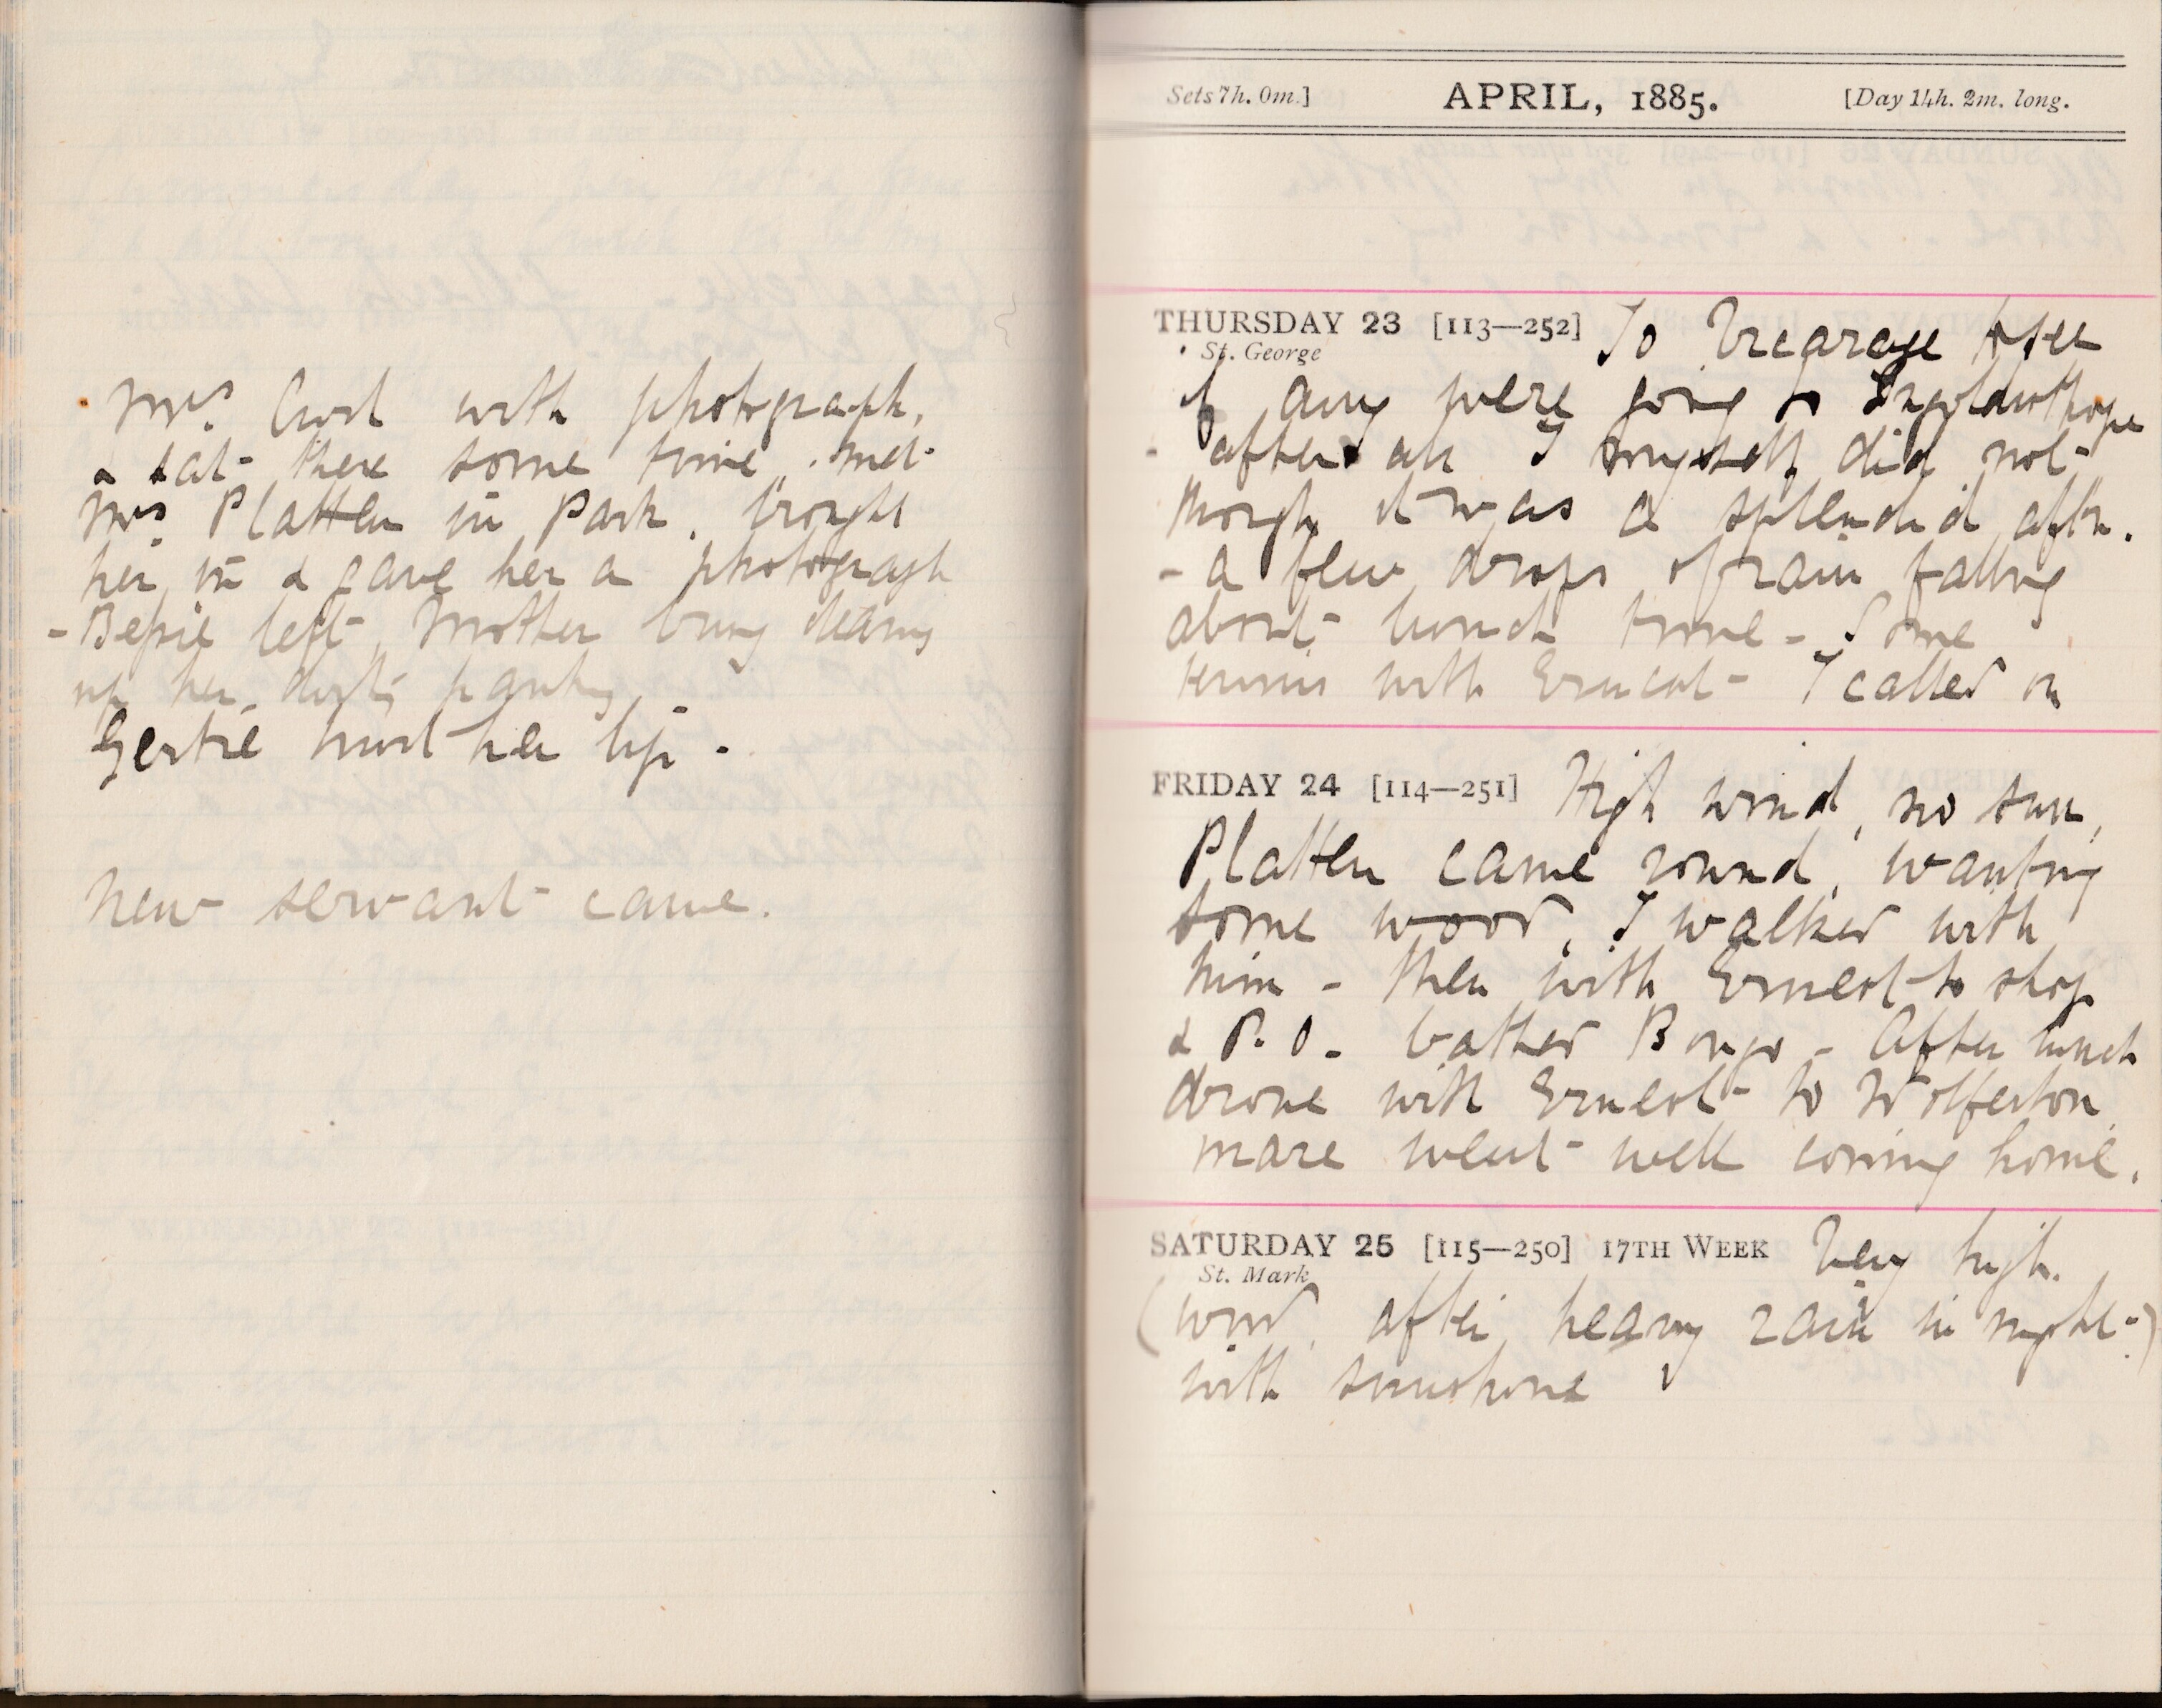 Mrs. Curl with photograph,
& sat there some time. met
Mrs. Platten in Park, brought
her in & gave her a photograph
- Bessie left, Mother busy cleaning
up her dirty pantry,
Gertie hurt her lip -
New servant came.
Sets 7h. 0m.] APRIL, 1885. [Day 14h. 2m. long.
THURSDAY 23 [113—252] To Vicarage to see
St. George
if any were going to Ingoldisthorpe
- after all I myself did not
though it was a splendid aftn.
- a few drops of rain falling
about lunch time - Some
tennis with Ernest - I called on
FRIDAY 24 [114—251] High wind, no sun,
Platten came round, wanting
some wood, I walked with
him - then with Ernest to shop
& P.O. - bathed Bongo - After lunch
drove with Ernest to Wolferton
mare went well coming home.
SATURDAY 25 [115—250] 17TH WEEK Very high
St. Mark
(wind, after heavy rain in night -)
with sunshine